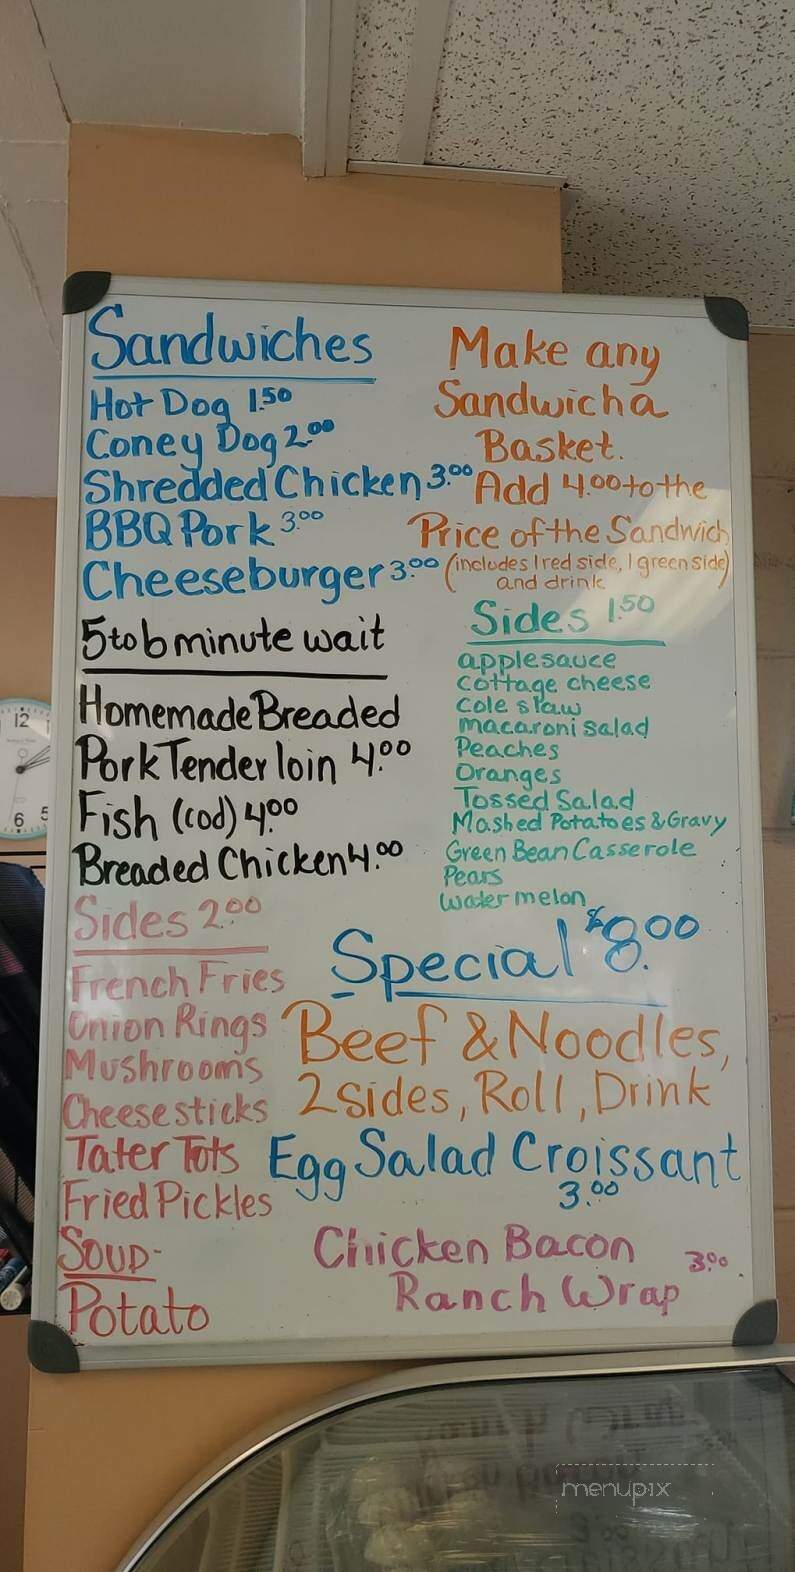 Sandwiches
Hot Dog 1.50
Coney Dog 2.00
Shredded Chicken 3.00
BBQ Pork 3.00
Cheeseburger 3.00
Make any
Sandwich a
Basket.
Add 4.00 to the
Price of the Sandwich
(includes 1 red side, 1 green side)
and drink
5 to 6 minute wait
Homemade Breaded
Pork Tenderloin 4.00
Fish (cod) 4.00
Breaded Chicken 4.00
Sides 1.50
applesauce
cottage cheese
cole slaw
macaroni salad
Peaches
Oranges
Tossed Salad
Mashed Potatoes & Gravy
Green Bean Casserole
Pears
watermelon
Sides 2.00
French Fries
Onion Rings
Mushrooms
Cheesesticks
Tater Tots
Fried Pickles
Soup-
Potato
Special $8.00
Beef & Noodles,
2 sides, Roll, Drink
Egg Salad Croissant
3.00
Chicken Bacon
Ranch Wrap 3.00
12
6
5
menupix